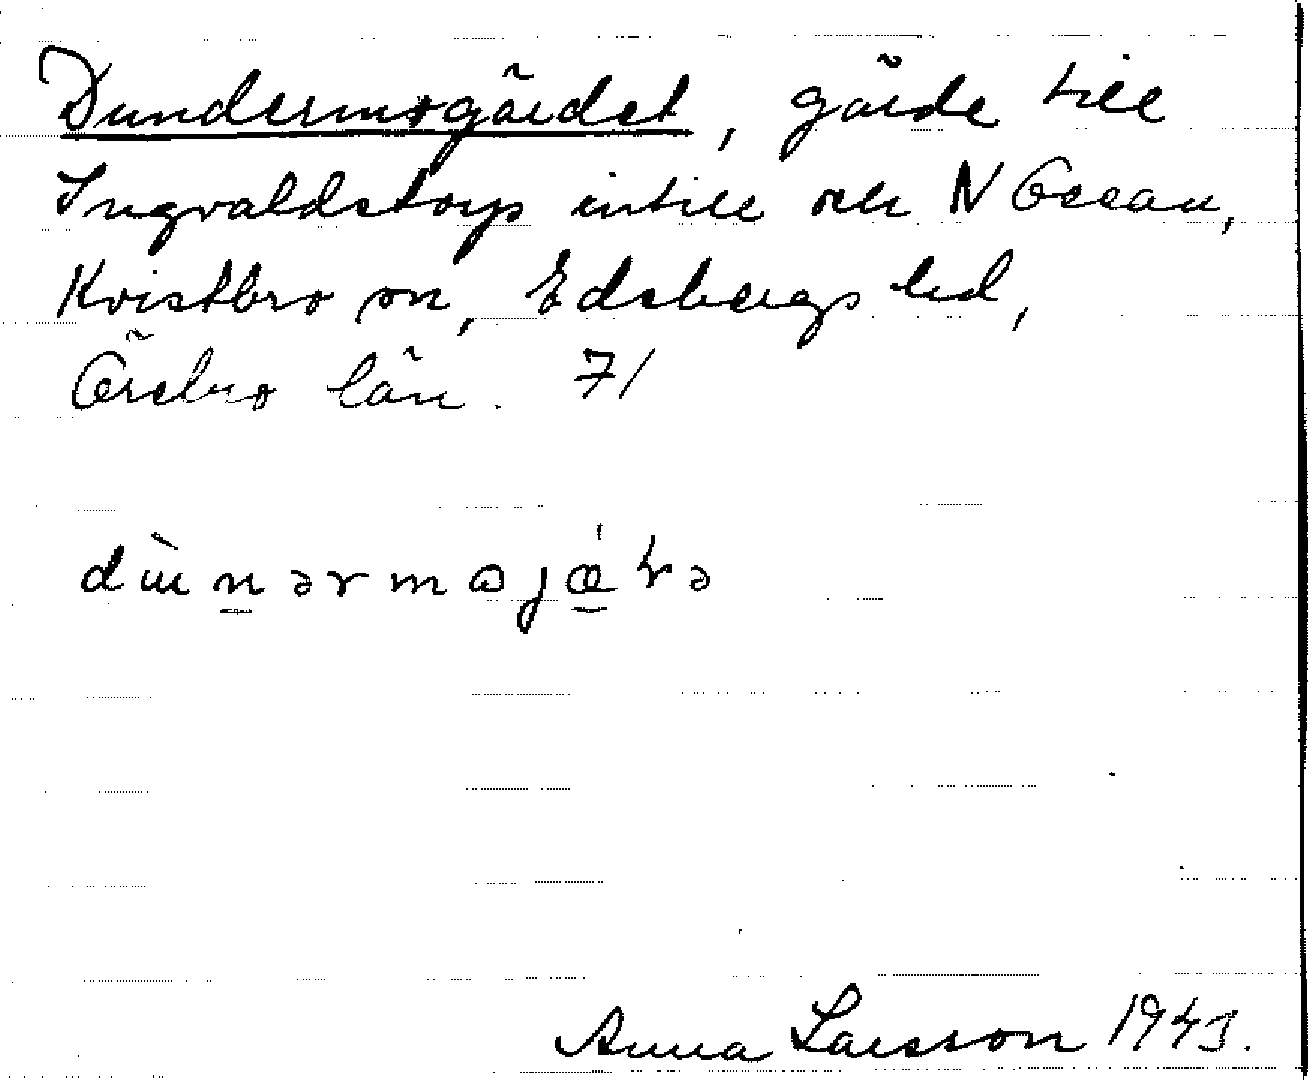 Dundermogärdet, gärde till
Ingvaldstorp intill och N Ösean,
Kvistbro sn, Edsbergs hd,
Örebro län. 71
dùnərmɷjǽɽə
Anna Larsson 1943.